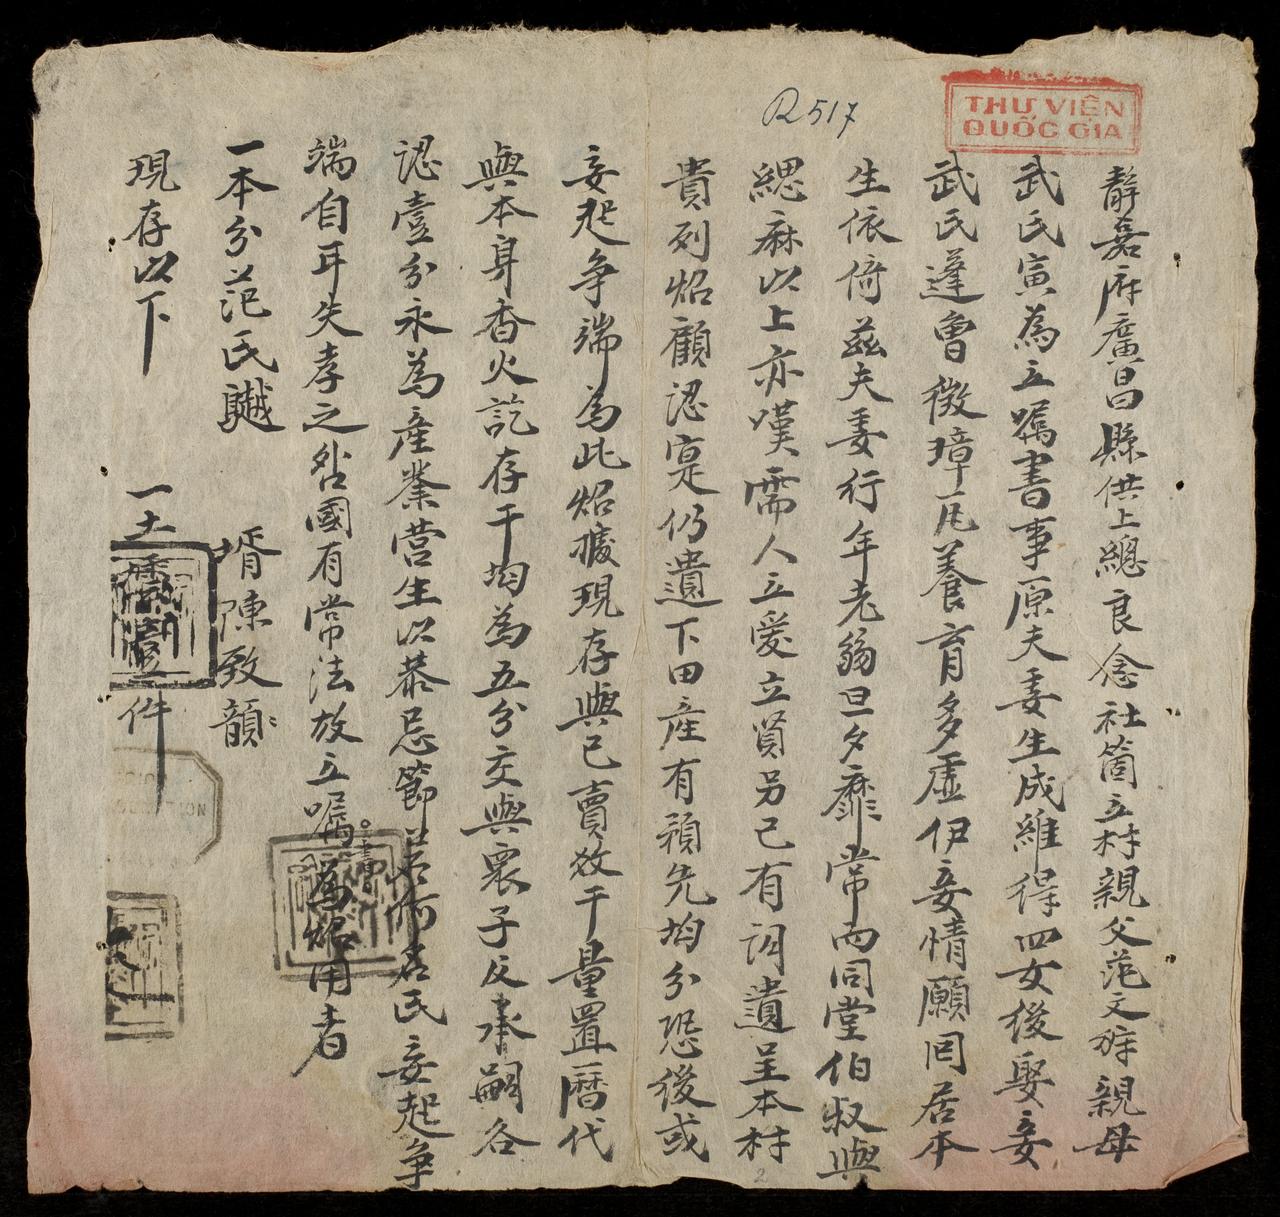 THƯ VIỆN
QUỐC GIA
R 517
靜嘉府廣昌縣供上總良念社箇立村親父范文 親母
武氏寅為立囑書事原夫妻生成維得四女後娶妾
武氏蓬曾徵璋瓦養育多虛伊妾情願囘居本
生依倚茲夫妻行年老弱旦夕靡常而同堂伯叔與
緦麻以上亦嘆需人立愛立賢另已有詞遺呈本村
貴列炤顧認寔仍遺下田産有預先均分恐後或
妄起争端為此炤據現存與已賣效干量置曆代
與本身香火訖存干均為五分交與衆子及承嗣各
認壹分永為産業營生以恭忌節若而名氏妄起争
端自耳失孝之咎國有常法故立囑書為炤用者
一本分范氏 壻陳致韻
現存以下 一土 壹件
2